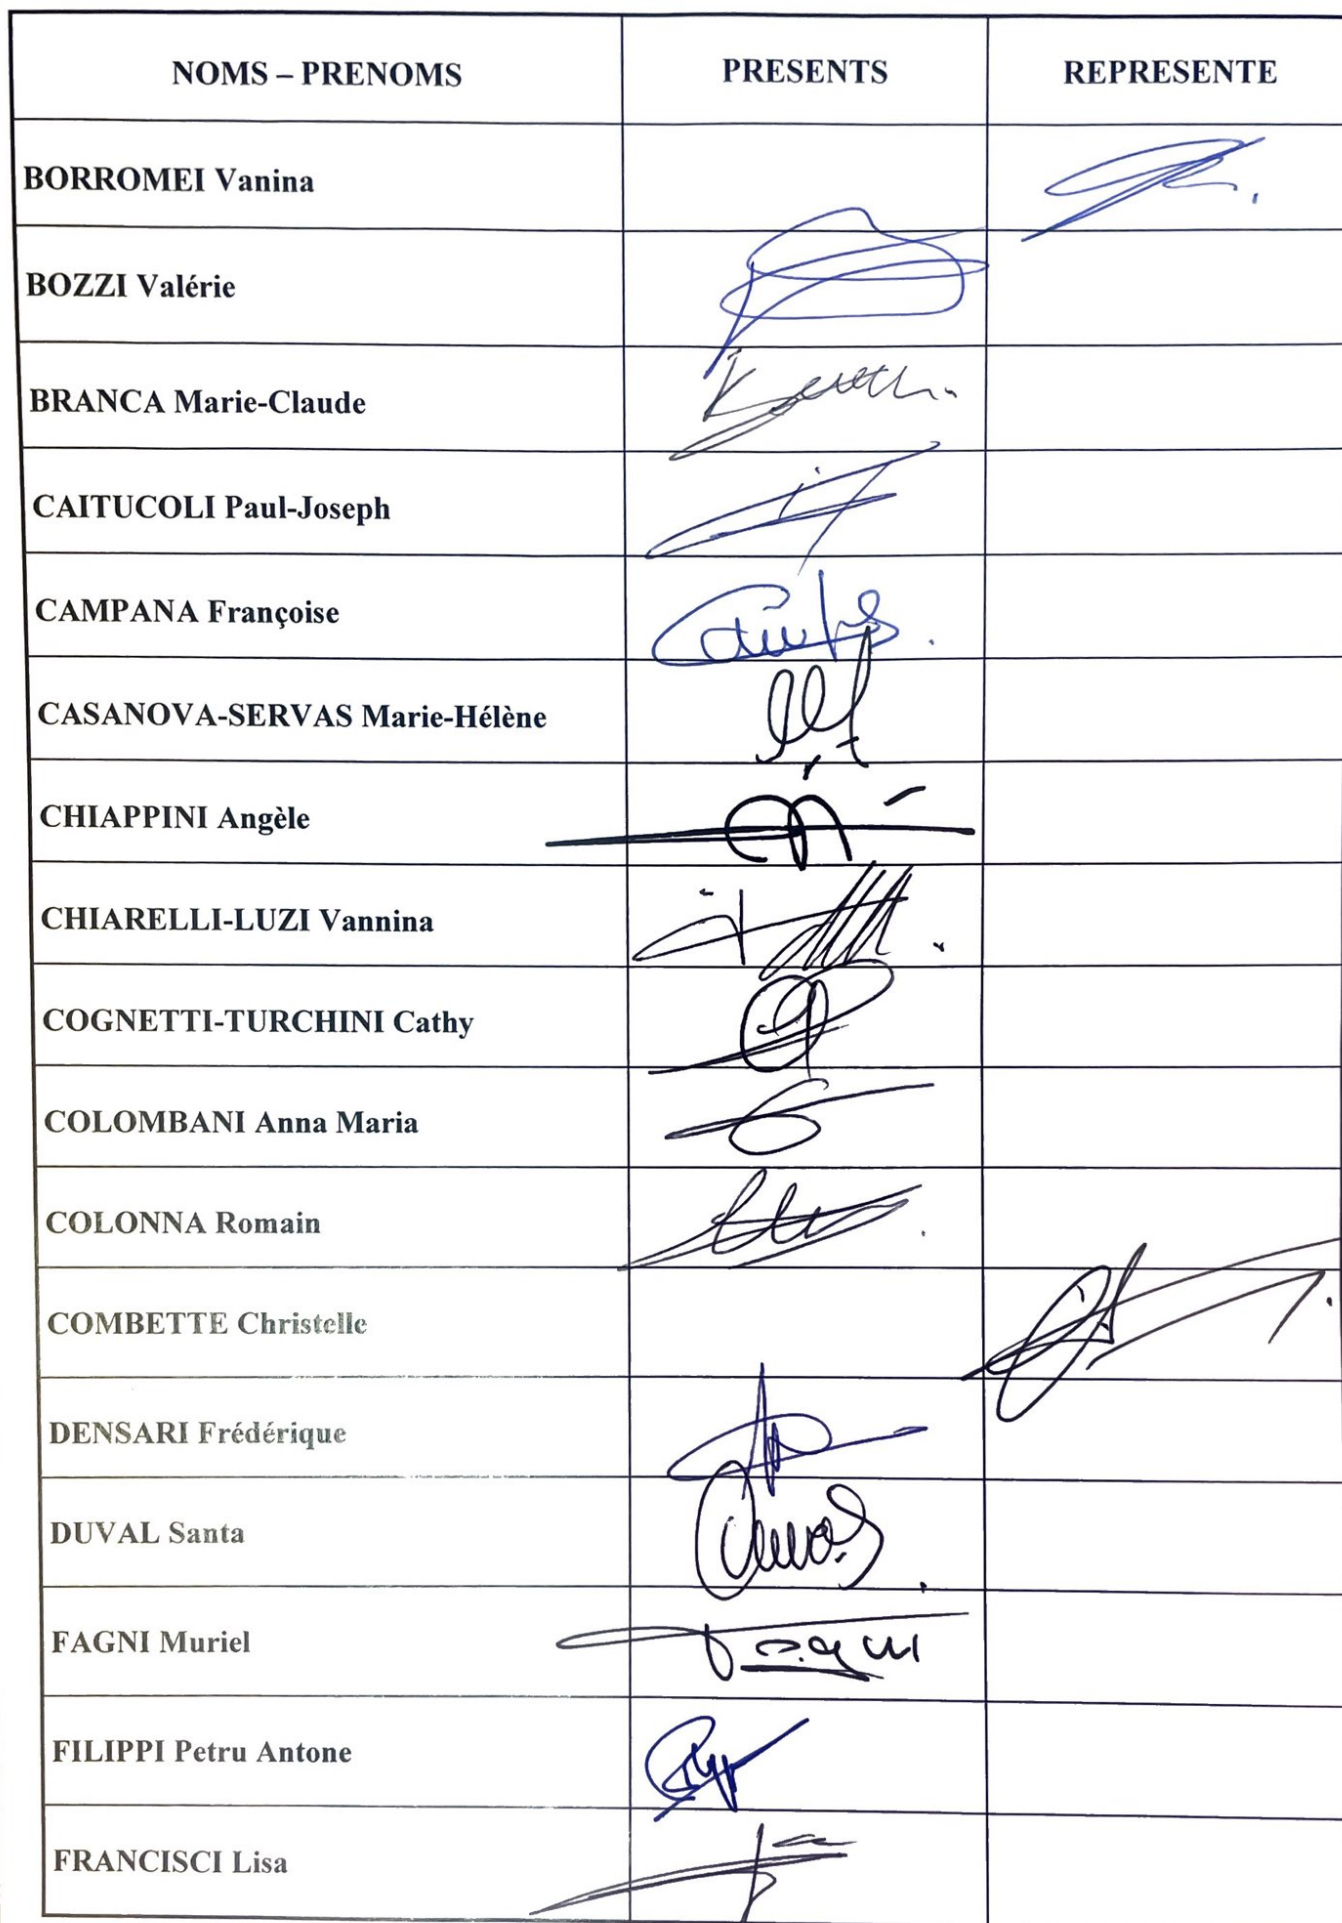 NOMS – PRENOMS PRESENTS REPRESENTE
BORROMEI Vanina
BOZZI Valérie
BRANCA Marie-Claude
CAITUCOLI Paul-Joseph
CAMPANA Françoise
CASANOVA-SERVAS Marie-Hélène
CHIAPPINI Angèle
CHIARELLI-LUZI Vannina
COGNETTI-TURCHINI Cathy
COLOMBANI Anna Maria
COLONNA Romain
COMBETTE Christelle
DENSARI Frédérique
DUVAL Santa
FAGNI Muriel
FILIPPI Petru Antone
FRANCISCI Lisa